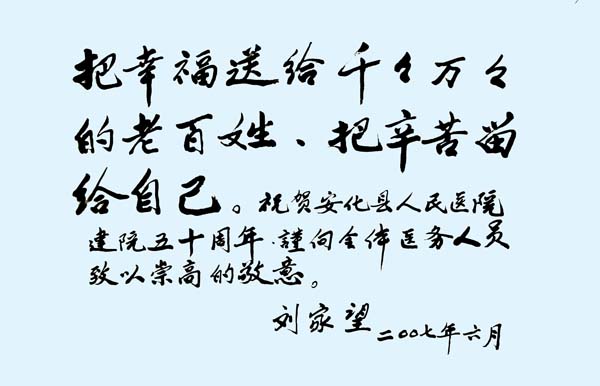 把幸福送给千々万々
的老百姓、把辛苦留
给自己。祝贺安化县人民医院
建院五十周年·謹向全体医务人员
致以崇高的敬意。
刘家望 二〇〇七年六月